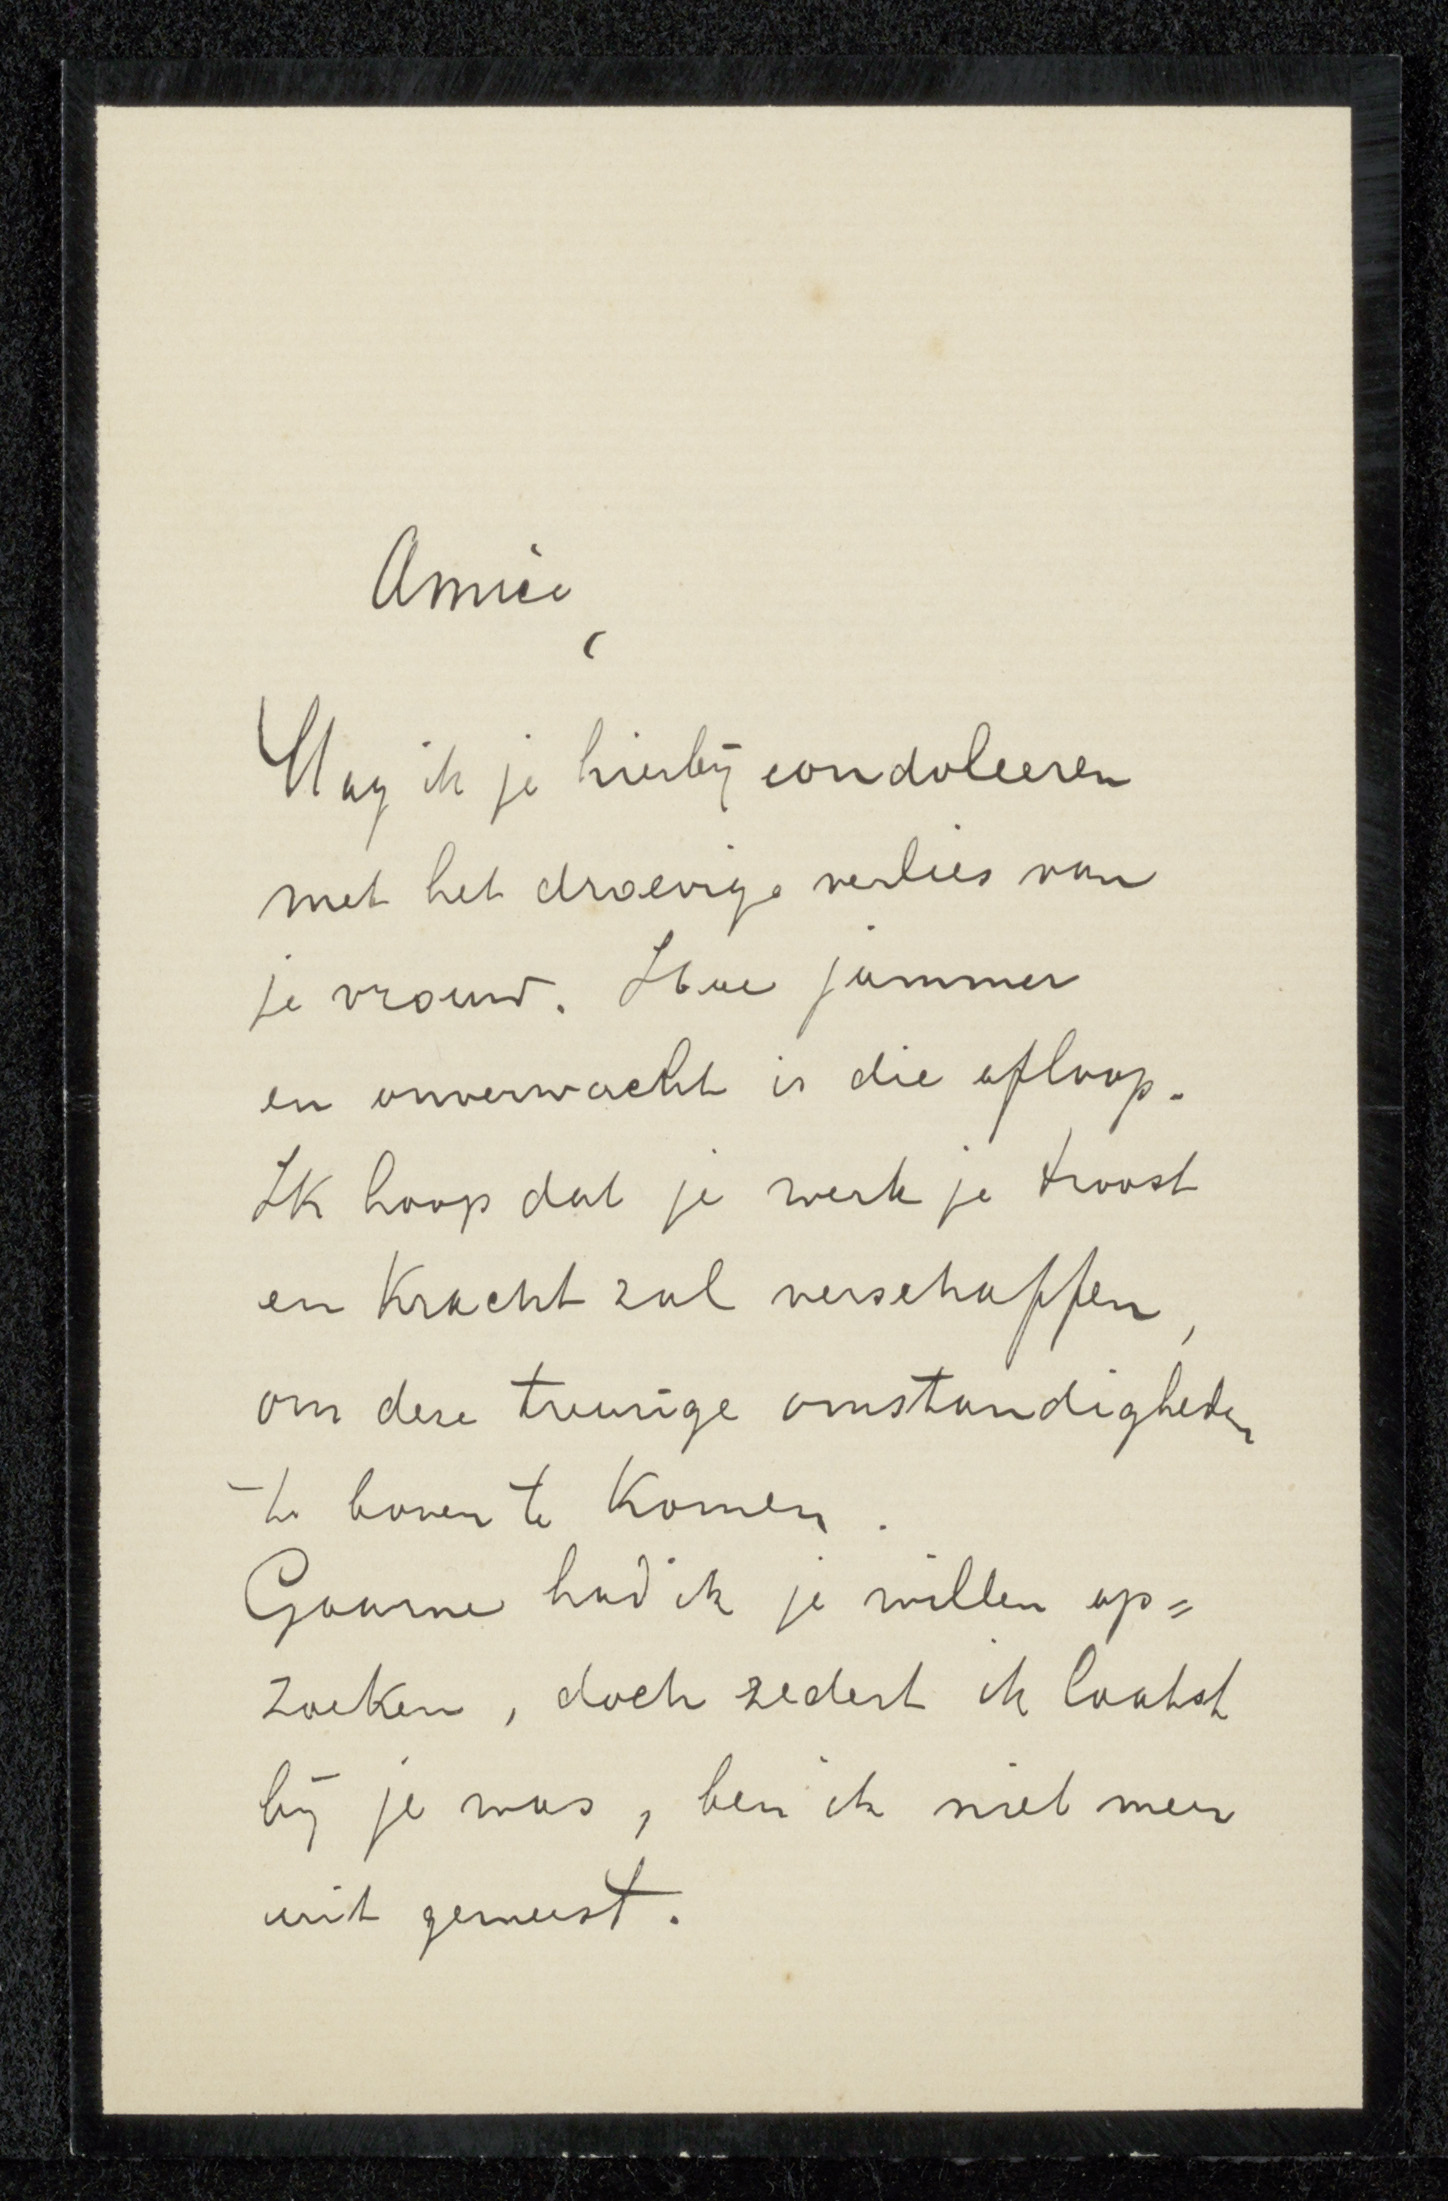 Amice,
Mag ik je hierbij condoleeren
met het droevige verlies van
je vrouw. Hoe jammer
en onverwacht is die afloop.
Ik hoop dat je werk je troost
en kracht zal verschaffen,
om deze treurige omstandigheden
te boven te komen.
Gaarne had ik je willen op=
zoeken, doch zedert ik laatst
bij je was, ben ik niet meer
uit geweest.